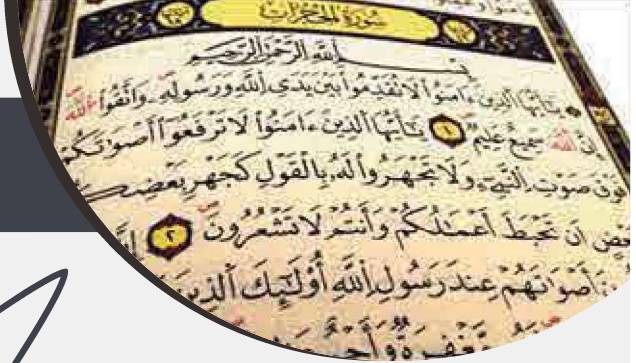 سُورَةُ الحُجُرَاتِ
بِسْمِ اللَّهِ الرَّحْمَٰنِ الرَّحِيمِ
يَٰٓأَيُّهَا ٱلَّذِينَ ءَامَنُوا۟ لَا تُقَدِّمُوا۟ بَيْنَ يَدَىِ ٱللَّهِ وَرَسُولِهِۦ وَٱتَّقُوا۟ ٱللَّهَ
إِنَّ ٱللَّهَ سَمِيعٌ عَلِيمٌ ١ يَٰٓأَيُّهَا ٱلَّذِينَ ءَامَنُوا۟ لَا تَرْفَعُوٓا۟ أَصْوَٰتَكُمْ
فَوْقَ صَوْتِ ٱلنَّبِىِّ وَلَا تَجْهَرُوا۟ لَهُۥ بِٱلْقَوْلِ كَجَهْرِ بَعْضِكُمْ
أَن تَحْبَطَ أَعْمَٰلُكُمْ وَأَنتُمْ لَا تَشْعُرُونَ ٢
أَصْوَٰتَهُمْ عِندَ رَسُولِ ٱللَّهِ أُو۟لَٰٓئِكَ ٱلَّذِينَ
مَّغْفِرَةٌ وَأَجْرٌ